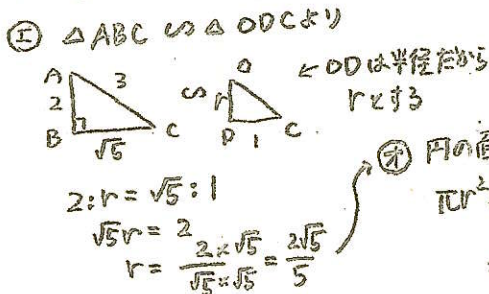 ㋓ △ABC ∽ △ODCより
A
3
2
B
√5
C
∽
O
r
D
1
C
← ODは半径だから
rとする
2:r = √5:1
√5r = 2
r = 2×√5/√5×√5 = 2√5/5
㋔ 円の
πr²